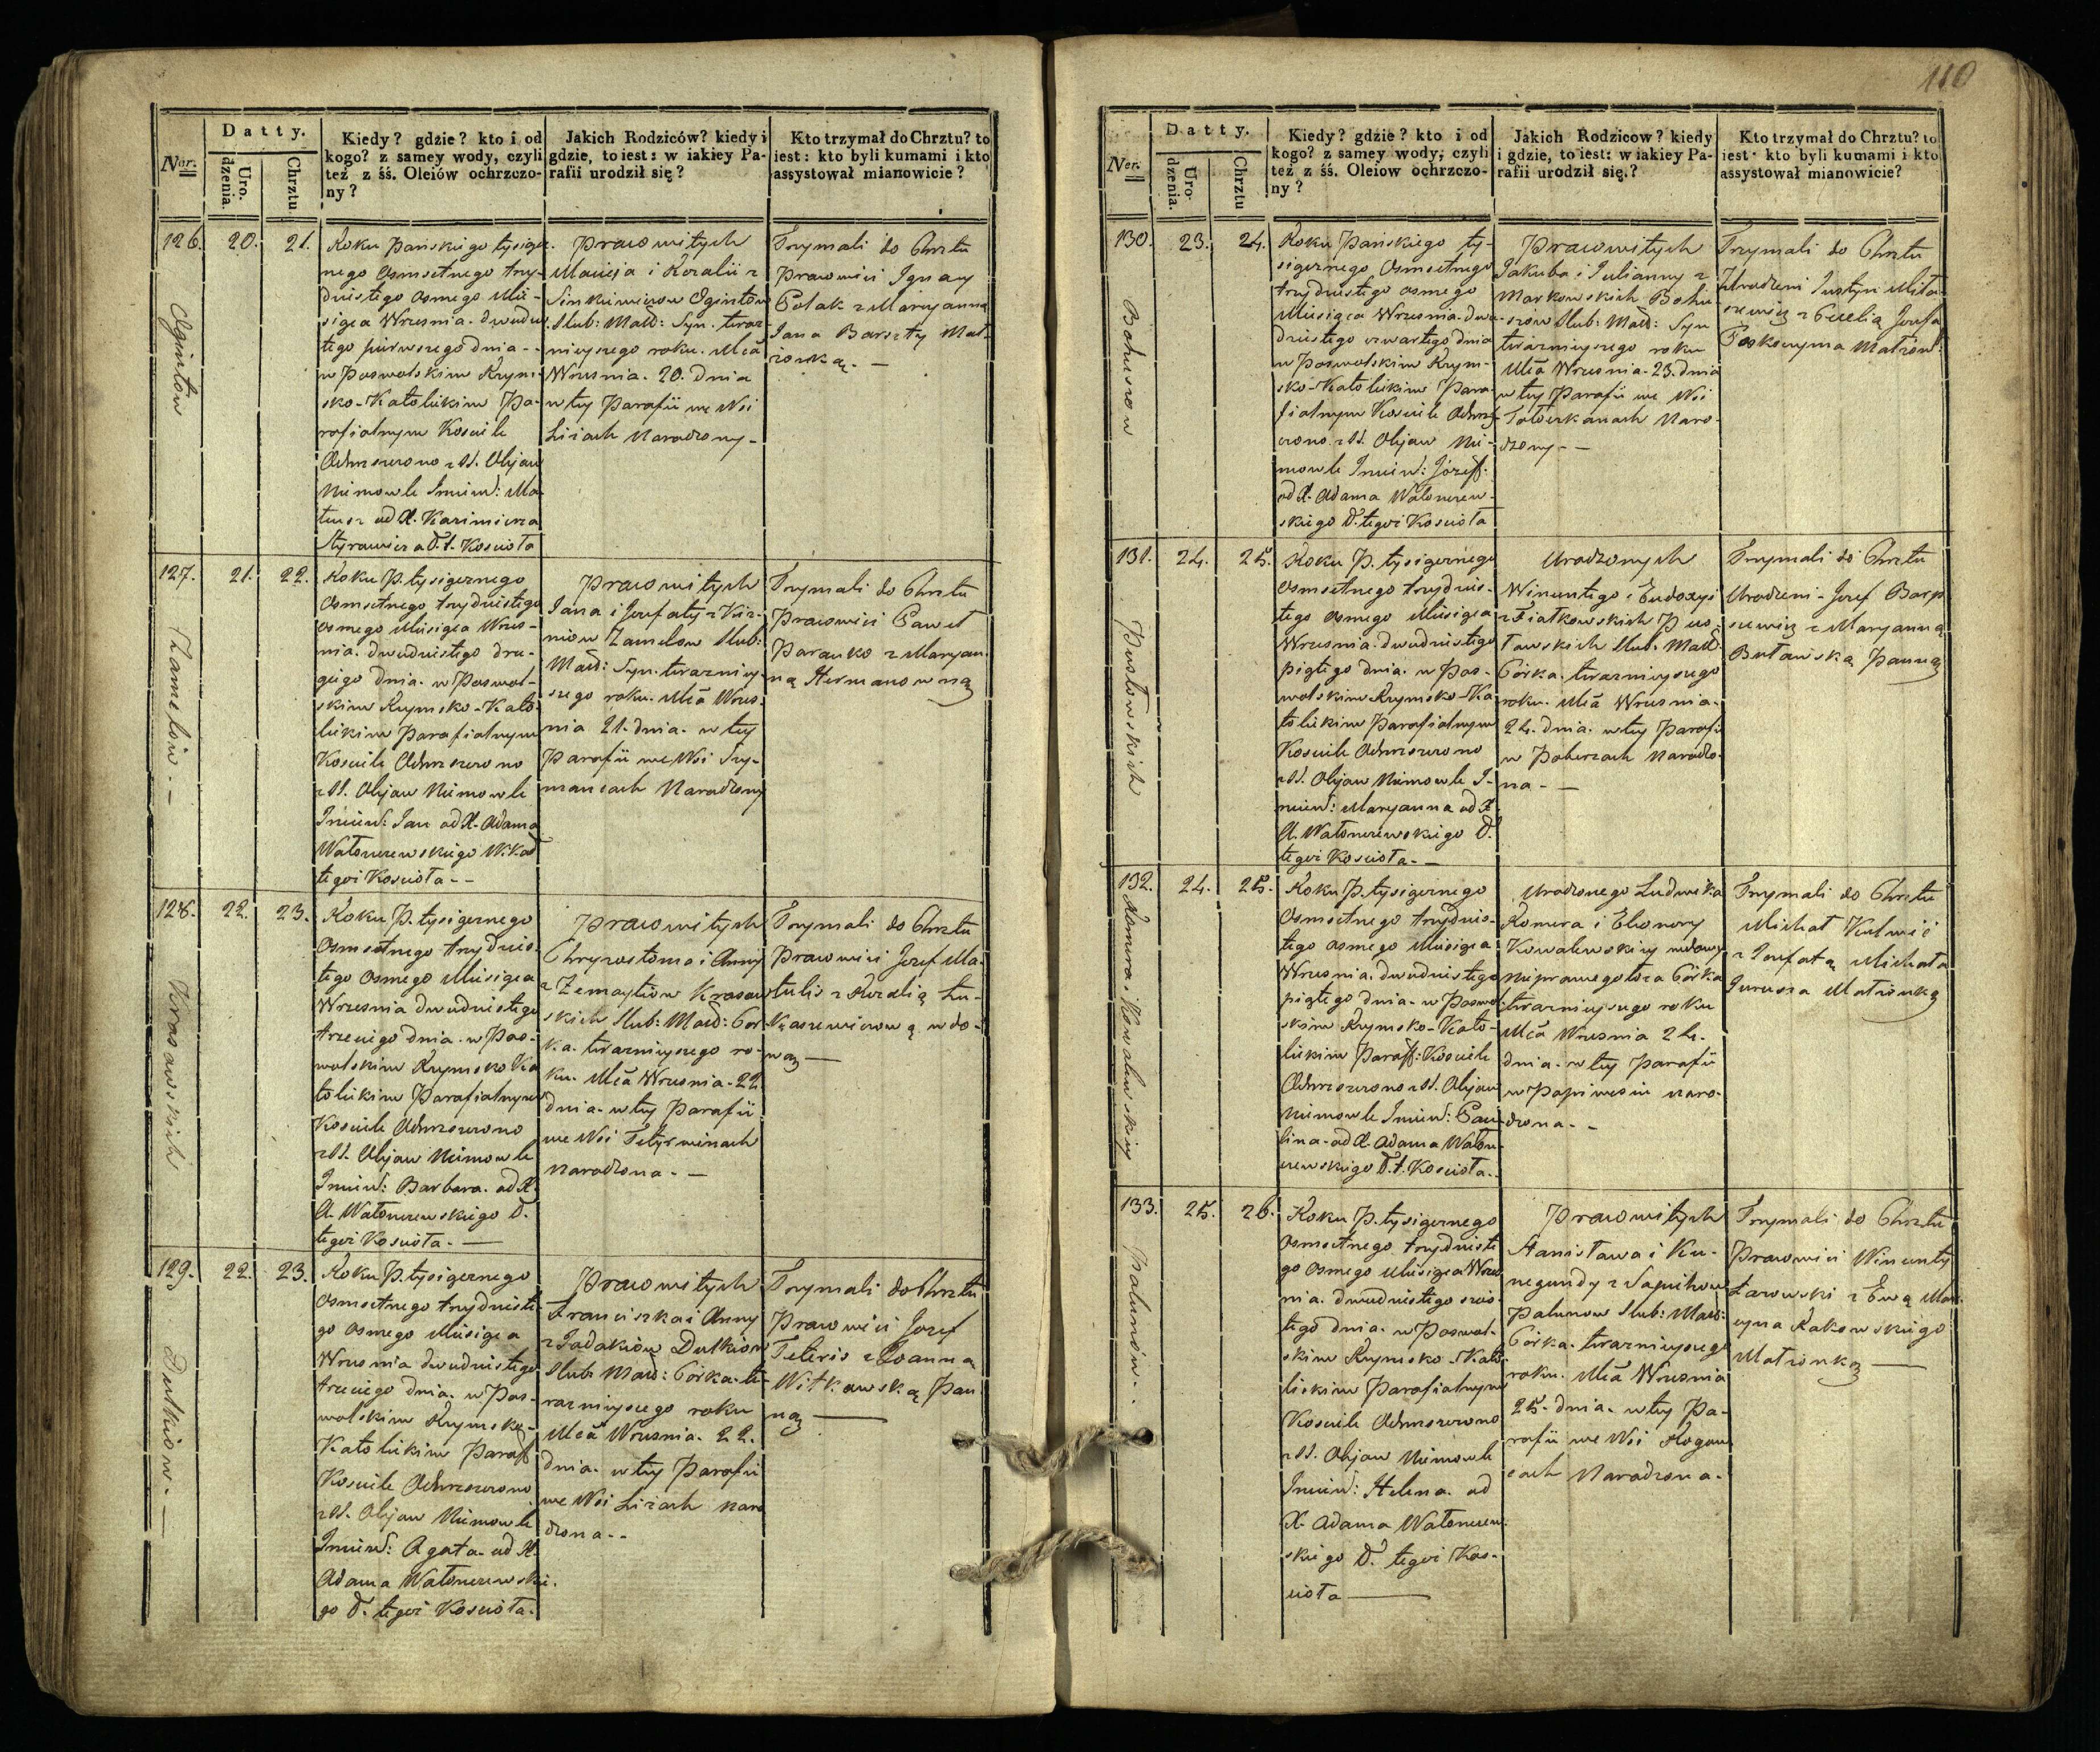 Ner.
Datty.
Uro.
dzenia.
Chrztu
Kiedy? gdzie? kto i od
kogo? z samey wody, czyli
też z śś. Oleiów ochrzczo-
ny?
Jakich Rodziców? kiedy i
gdzie, to iest: w iakiey Pa-
rafii urodził się?
Kto trzymał do Chrztu? to
iest: kto byli kumami i kto
assystował mianowicie?
126.
20.
21.
Ogintów
Roku Pańskiego tysiącz-
nego Osmsetnego trzy-
dziestego osmego Mie-
siąca Wrzesnia. dwudzies-
tego pierwszego dnia -
w Poswolskim Rzym-
sko-Katolickim Pa-
rafialnym Kosciele
Ochrzczono z SS. Olejow
Niemowle Imien: Ma-
teusz od X. Kazimierza
a D. t. Koscioła
Prawowitych
Macieja i Rozalii z
Sinkiewiczow Ogintów
Slub: Małż: Syn. teraz-
nieyszego roku. Mca
Wrzesnia. 20. dnia
w tey Parafii we Wsi
Liciach Narodzony -
Trzymali do Chrztu
Prawowici Ignacy
Polak z Maryanną
Jana Barszty Mał-
żonką. -
127.
21.
22.
Zamelów. -
Roku P. tysiącznego
Osmsetnego trzydziestego
osmego Miesiąca Wrzes-
nia. dwudziestego dru-
giego dnia. w Poswol-
skim Rzymsko-Kato-
lickim Parafialnym
Kosciele Ochrzczono
z SS. Olejow Niemowle
Imien: Jan od X. Adama
Wałonczewskiego W.
tegoż Kosciola. -
Prawowitych
Jana i Jozefaty z Kur-
niow Zamelow Slub:
Małż: Syn. terazniey-
szego roku. Mca Wrzes-
nia 21. dnia. w tey
Parafii we Wsi Szy-
maniach Narodzony
Trzymali do Chrztu
Prawowici Paweł
Paranko z Maryan-
ną Hermanowną
128.
22.
23.
Krasawskich
Roku P. tysiącznego
Osmsetnego trzydzies-
tego osmego Miesiąca
Wrzesnia dwudziestego
trzeciego dnia. w Pos-
wolskim Rzymsko Ka-
tolickim Parafialnym
Kosciele Ochrzczono
z SS. Olejow Niemowle
Imien: Barbara. od X.
A. Wałonczewskiego D.
tegoż Kosciola. -
Prawowitych
Chryzostoma i Anny
z Zemaytiow Krasaw-
skich Slub: Małż: Cor-
ka. teraznieyszego ro-
ku. Mca Wrzesnia. 22
dnia. w tey Parafii
we Wsi Tetyrwinach
Narodzona. -
Trzymali do Chrztu
Prawowici Jozef Ma-
tulis z Rozalią Łu-
kaszewiczową wdo-
wą -
129.
22.
23.
Dulkiow. -
Roku P. tysiącznego
Osmsetnego trzydzieste-
go osmego Miesiąca
Wrzesnia dwudziestego
trzeciego dnia. w Pos-
wolskim Rzymsko-
Katolickim Paraf
Kosciele Ochrzczono
z SS. Olejow Niemowle
Imien: Agata. od X.
Adama Wałonczewskie-
go D. tegoż Kosciola.
Prawowitych
Franciszka i Anny
z Jadakiow Dulkiow
Slub: Małż: Corka. te-
raznieyszego roku
Mca Wrzesnia. 22.
dnia. w tey Parafii
we Wsi Liciach naro-
dzona. -
Trzymali do Chrztu
Prawowici Jozef
Teteris z Joanną
Witkowską Pan-
ną -
110
Ner.
Datty.
Uro-
dzenia.
Chrztu
Kiedy? gdzie? kto i od
kogo? z samey wody, czyli
też z śś. Oleiow ochrzczo-
ny?
Jakich Rodzicow? kiedy
i gdzie, to iest: w iakiey Pa-
rafii urodził się.?
Kto trzymał do Chrztu? to
iest: kto byli kumami i kto
assystował mianowicie?
130.
23.
24.
Bohuszow
Roku Pańskiego ty-
siącznego Osmsetnego
trzydziestego osmego
Miesiąca Wrzesnia. dwu-
dziestego czwartego dnia
w Poswolskim Rzym-
sko-Katolickim Para-
fialnym Kosciele Ochrz-
czono. z SS. Olejow Nie-
mowle Imien: Józeff.
od X. Adama Wałonczew-
skiego D. tegoż Kosciola
Prawowitych
Jakuba i Julianny z
Markowskich Bohu-
szów Slub: Małż: Syn
teraznieyszego roku
Mca Wrzesnia. 23. dnia
w tey Parafii we Wsi
Tołoczkanach Naro-
dzony. -
Trzymali do Chrztu
Urodzeni Justyn Mita-
szewicz z Cecylią Jozefa
Małżon:
131.
24.
25.
Pusłowskich
Roku P. tysiącznego
Osmsetnego trzydzies-
tego osmego Miesiąca
Wrzesnia. dwudziestego
piątego dnia. w Pos-
wolskim Rzymsko-Ka
tolickim Parafialnym
Kosciele Ochrzczono
z SS. Olejow Niemowle I-
mien: Maryanna od X.
A. Wałonczewskiego D.
tegoż Kosciola. -
Urodzonych
Wincentego i Eudoxyi
z Fiałkowskich Pus-
łowskich Slub: Małż:
Corka. teraznieyszego
roku. Mca Wrzesnia.
24. dnia. w tey Parafii
w Poberzach Narodzo-
na. -
Trzymali do Chrztu
Urodzeni. Jozef Barp-
szewicz z Maryanną
Butawską Panną
132.
24.
25.
Romera i Kowalewskiey
Roku P. tysiącznego
Osmsetnego trzydzies-
tego osmego Miesiąca
Wrzesnia. dwudziestego
piątego dnia. w Poswol-
skim Rzymsko-Kato-
lickim Paraff: Kosciele
Ochrzczono z SS. Olejow
Niemowle Imien: Pau-
lina. od X. Adama Wałon-
czewskiego D. t. Kosciola.
Urodzonego Ludwika
Romera i Eleonory
Kowalewskiey wdowy
nieprawego łoza Córka
teraznieyszego roku
Mca Wrzesnia 24.
dnia. w tey Parafii
w Popiwesiu naro-
dzona. -
Trzymali do Chrztu
Michał Kulwić
z Jozefatą Michała
Małżonką
133.
25.
26.
Palunów.
Roku P. tysiącznego
Osmsetnego trzydzieste
go osmego Miesiąca Wrzes
nia. dwudziestego szos-
tego dnia. w Poswol-
skim Rzymsko-Kato-
lickim Parafialnym
Kosciele Ochrzczono
z SS. Olejow Niemowle
Imien: Helena. od
X. Adama Wałonczew-
skiego D. tegoż Kos-
ciola -
Prawowitych
Stanisława i Ku-
negundy z Sapiehow
Palunow Slub: Małż:
Córka. teraznieyszego
roku. Mca Wrzesnia
25. dnia. w tey Pa-
rafii we Wsi Rogow-
cach Narodzona.
Trzymali do Chrztu
Prawowici Wincenty
Larowski z Ewą Mar-
cyna Rakowskiego
Małżonką -